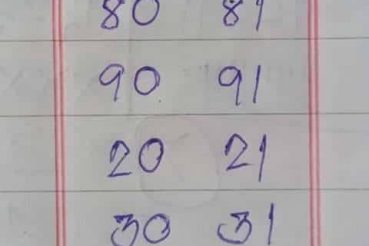 80 81
90 91
20 21
30 31